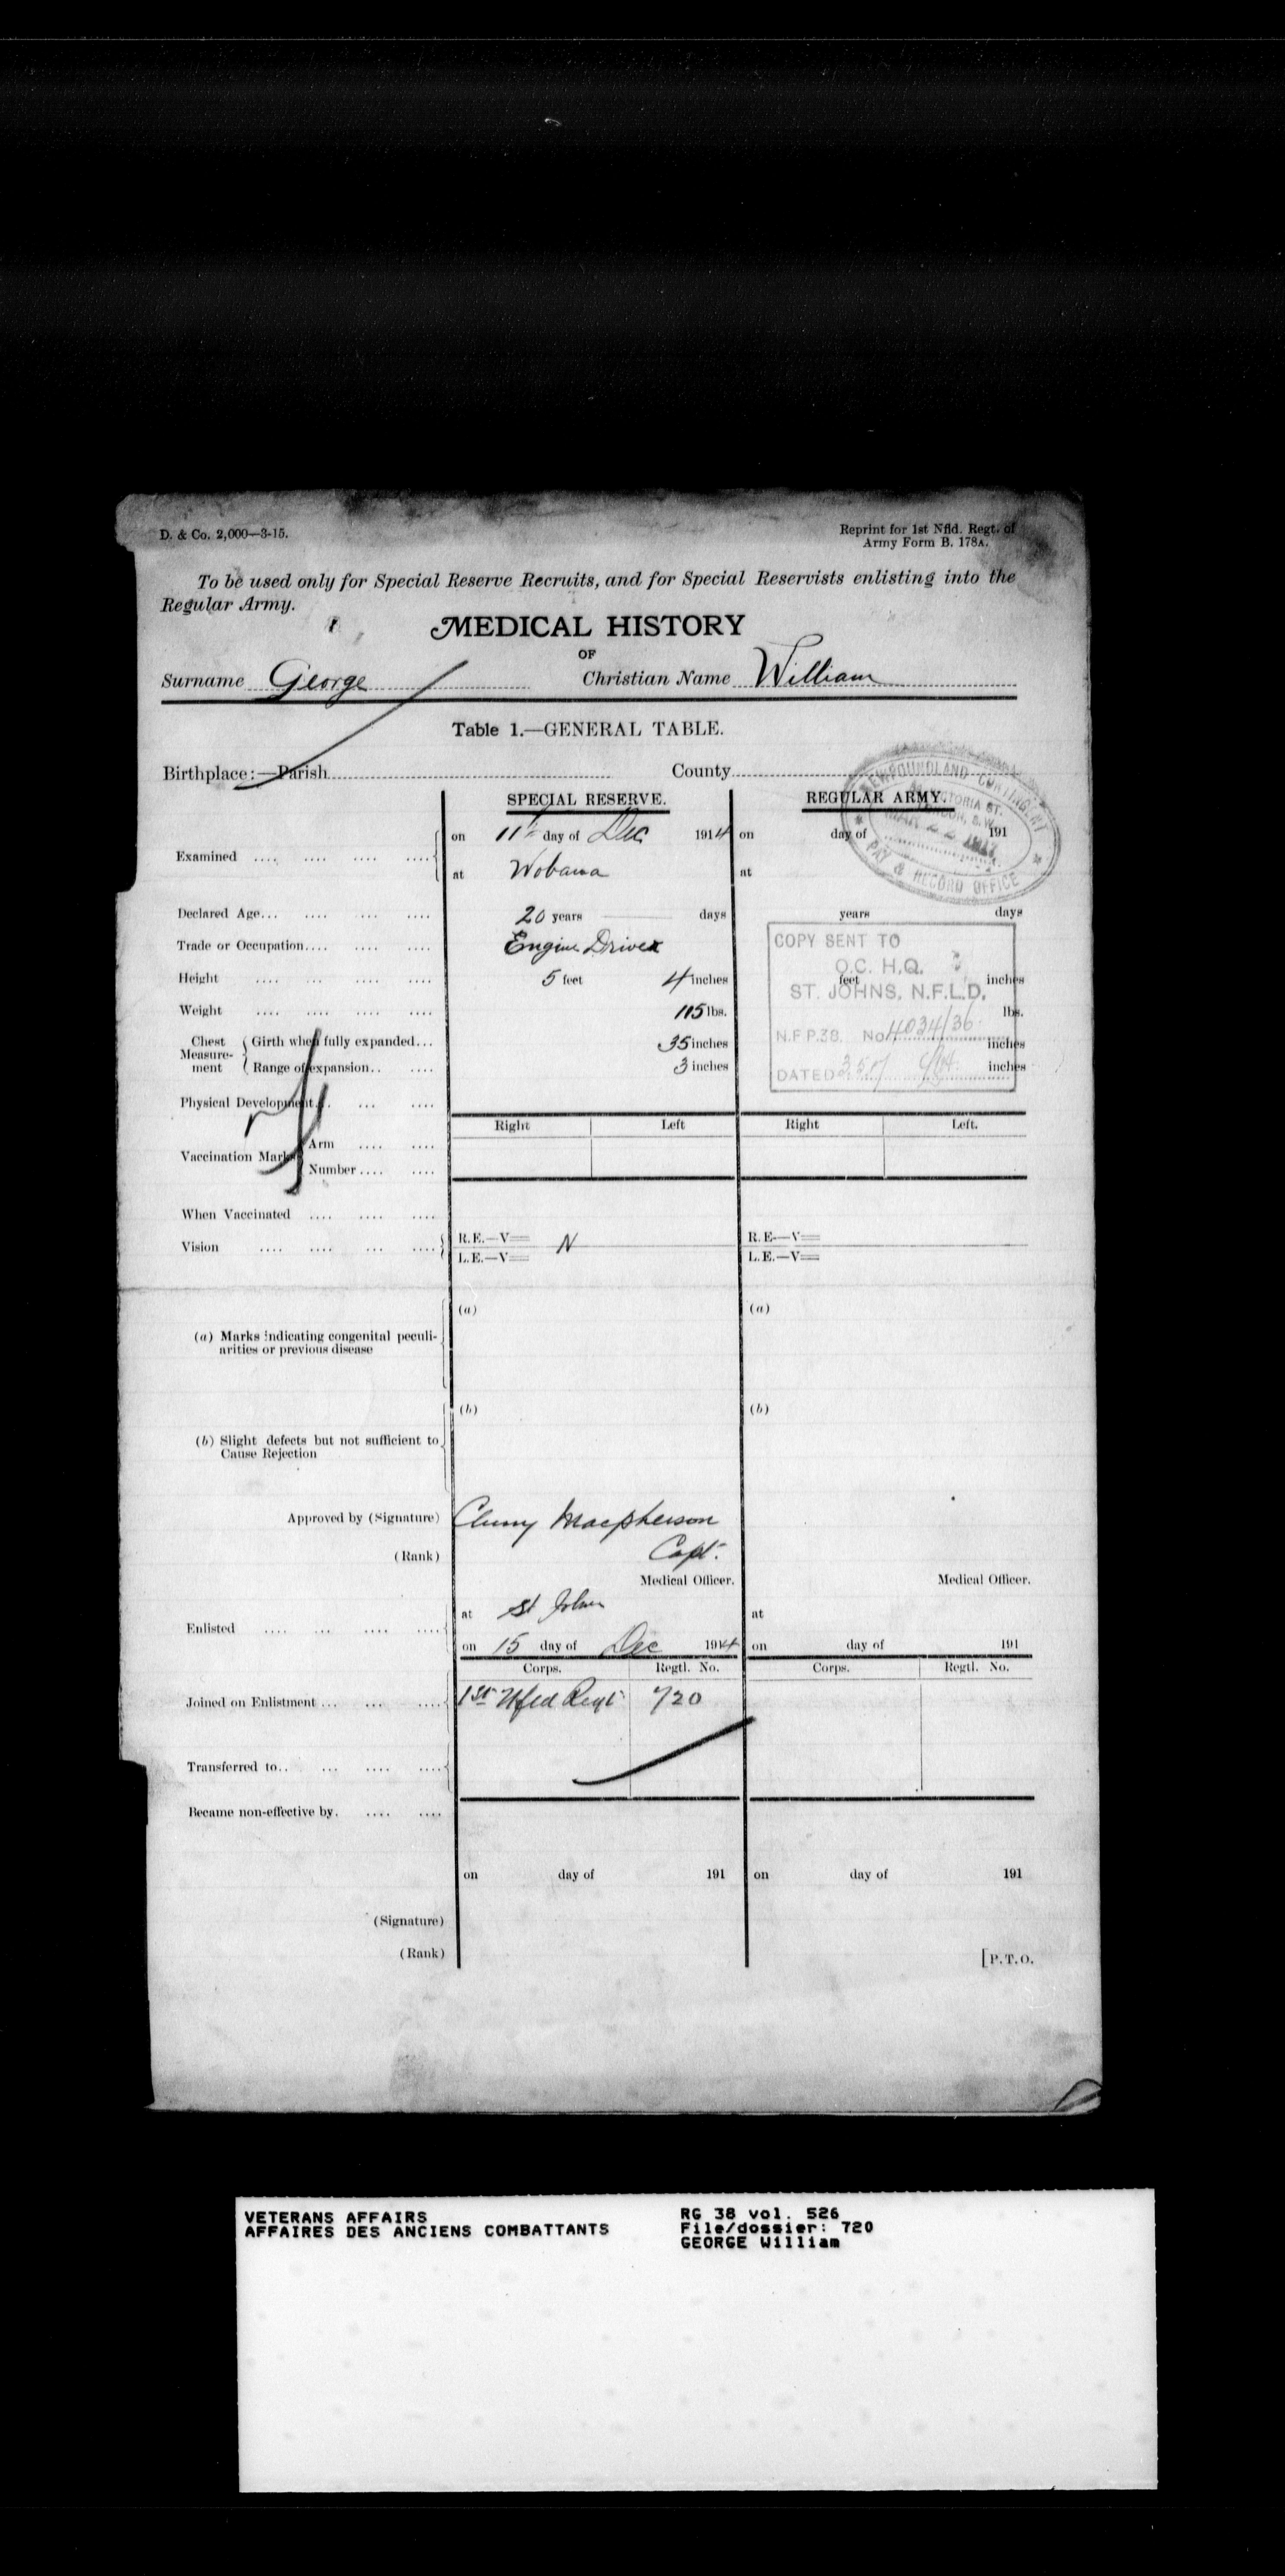 D. & Co. 2,000—3-15.
Reprint for 1st Nfld. Regt. of
Army Form B. 178A.
To be used only for Special Reserve Recruits, and for Special Reservists enlisting into the
Regular Army.
MEDICAL HISTORY
OF
Surname George Christian Name William
Table 1.—GENERAL TABLE.
Birthplace:—Parish County
SPECIAL RESERVE. REGULAR ARMY.
NEWPOUNDLAND CONTINGENT
VICTORIA ST.
LONDON, S.W.
MAR 22 1917
PAY & RECORD OFFICE
Examined on 11th day of Dec 1914 on day of 191
at Wobana at
Declared Age 20 years days years days
Trade or Occupation Engine Driver
Height 5 feet 4 inches feet inches
Weight 115 lbs. lbs.
Chest Measure-ment Girth when fully expanded 35 inches inches
Range of expansion 3 inches inches
COPY SENT TO
O.C. H.Q.
ST. JOHNS, N.F.L.D.
N.F.P.38. No 4034/36
DATED
Physical Development
Right Left Right Left.
Vaccination Marks Arm
Number
When Vaccinated
Vision R.E.—V= N R.E—V=
L.E.—V= L.E.—V=
(a) (a)
(a) Marks indicating congenital peculi-
arities or previous disease
(b) (b)
(b) Slight defects but not sufficient to
Cause Rejection
Approved by (Signature) Cluny Macpherson
(Rank) Capt.
Medical Officer. Medical Officer.
Enlisted at St Johns at
on 15 day of Dec 1914 on day of 191
Corps. Regtl. No. Corps. Regtl. No.
Joined on Enlistment 1st Nfld Regt 720
Transferred to
Became non-effective by
on day of 191 on day of 191
(Signature)
(Rank)
[P.T.O.
VETERANS AFFAIRS RG 38 vol. 526
AFFAIRES DES ANCIENS COMBATTANTS File/dossier: 720
GEORGE William